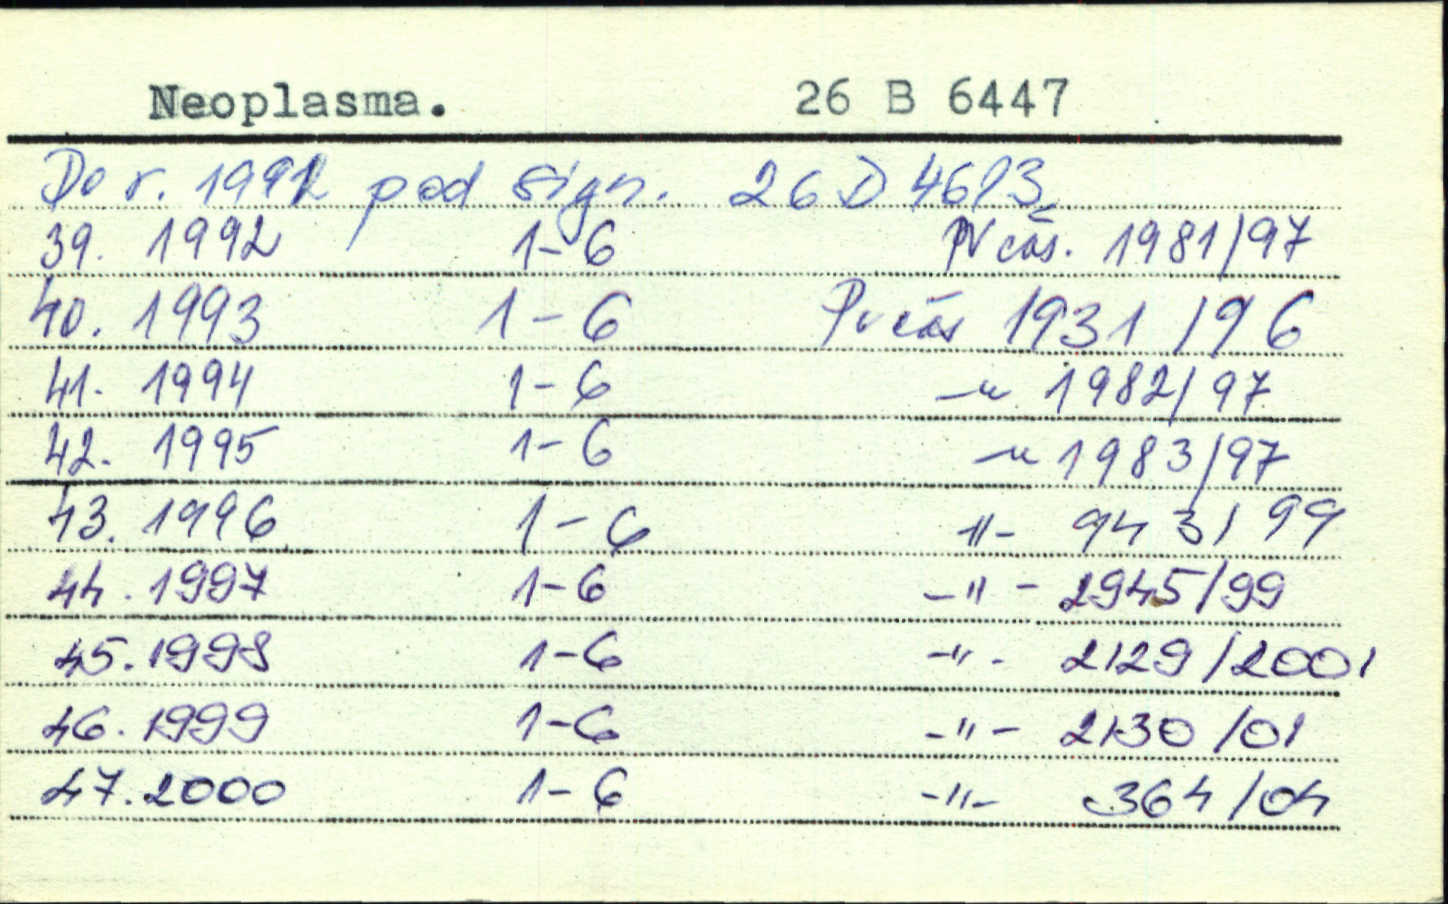 Neoplasma. 26 B 6447
Do r. 1991 pod sign. 26 D 4613
39. 1992 1-6 PV čas. 1981/97
40. 1993 1-6 Pv čas 1931/96
41. 1994 1-6 -"- 1982/97
42. 1995 1-6 -"- 1983/97
43. 1996 1-6 "- 943/99
44. 1997 1-6 -"- 2945/99
45. 1998 1-6 -"- 2129/2001
46. 1999 1-6 -"- 2130/01
47. 2000 1-6 -"- 364/04